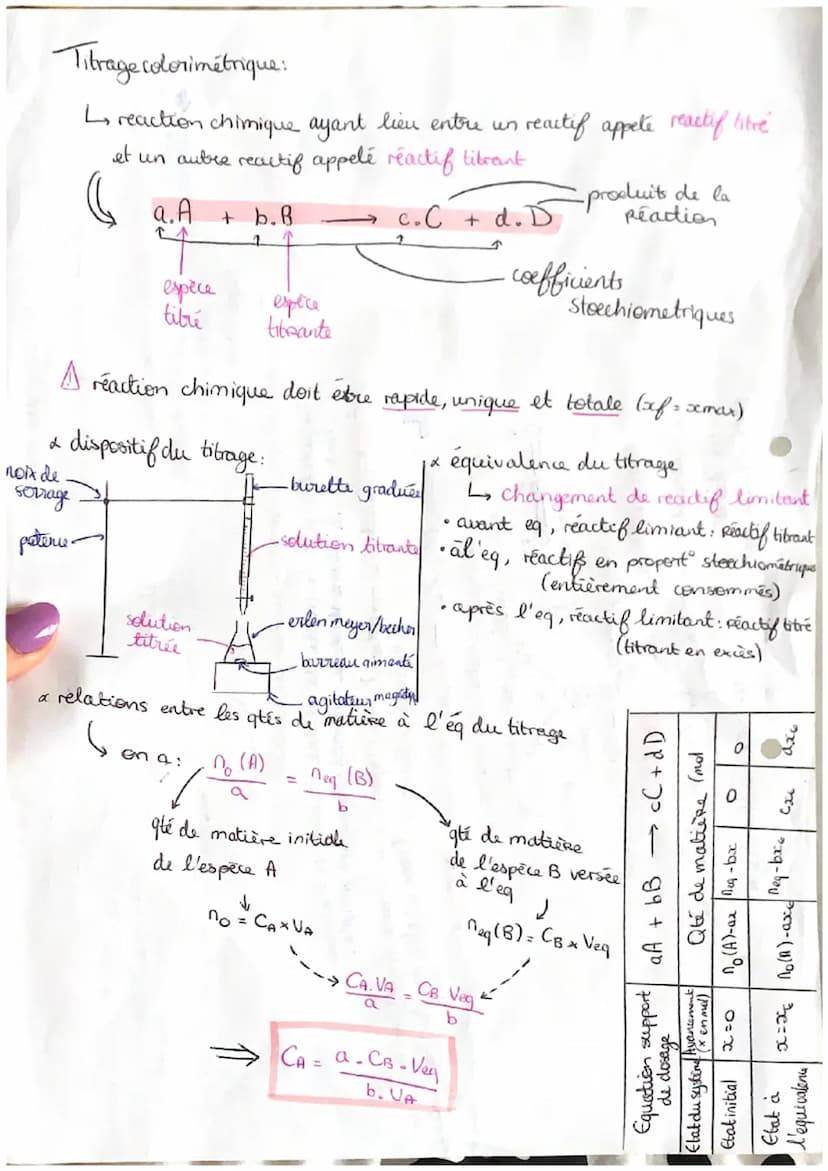 Titrage colorimétrique:
↳ reaction chimique ayant lieu entre un reactif appelé reactif titré
et un autre reactif appelé réactif titrant
a.A + b.B → c.C + d.D
produits de la
réaction
espèce
titré
espèce
titrante
coefficients
stoechiometriques
⚠ réaction chimique doit être rapide, unique et totale (xf = xmax)
α dispositif du titrage:
noix de
serrage
potence
burette graduée
solution titrante
solution
titrée
erlen meyer/becher
barreau aimanté
agitateur magétiq
α équivalence du titrage
↳ changement de reactif limitant
• avant eq, réactif limiant: Réactif titrant
• àl'eq, réactifs en proport° stoechiométrique
(entièrement consommés)
• après l'eq, réactif limitant: réactif titré
(titrant en excès)
α relations entre les qtés de matière à l'éq du titrage
↳ on a: n₀(A)/a = neq(B)/b
qté de matière initiale
de l'espèce A
n₀ = CA × VA
qté de matière
de l'espèce B versée
à l'eq
neq(B) = CB × Veq
CA.VA/a = CB Veq/b
⇒ CA = a.CB.Veq/b.VA
Equation support
de dosage
aA + bB → cC + dD
Etat du système
Avancement
(x en mol)
Qté de matière (mol
Etat initial
x=0
n₀(A)-ax
neq-bx
0
0
Etat à
l'equivalence
x=xE
n₀(A)-axE
neq-bxE
cxE
dxE